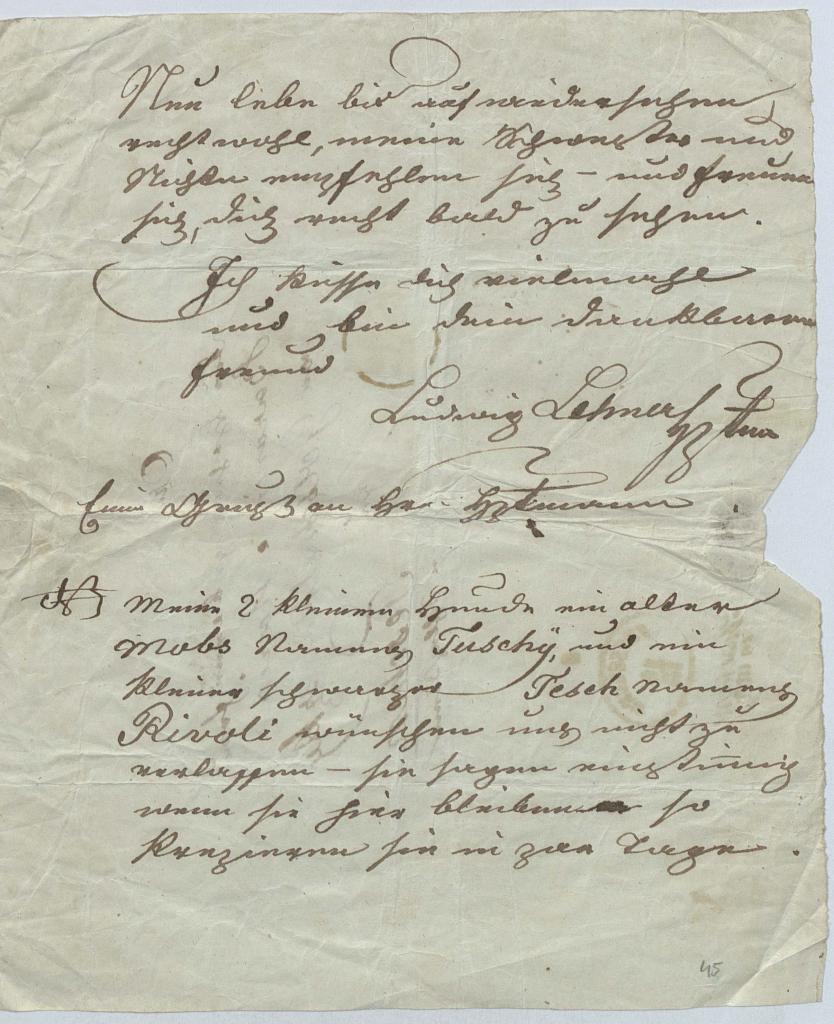 Nun lebe bis auf wiedersehen
recht wohl, meine Schwester und
Nichten empfehlen sich - und freuen
sich, dich recht bald zu sehen.
Ich küsse dich vielmahl
und bin dein dankbarer
freund
Ludwig Lehner
Hptm
Einen Gruß an Hr. Hptmann
NB Meine 2 kleinen Hunde ein alter
Mobs Namens Tuschÿ, und ein
kleiner schwarzer Tesch Namens
Rivoli wünschen uns nicht zu
verlassen - sie sagen einstimig
wenn sie hier bleiben so
krepieren sie in zwe Tage.
45